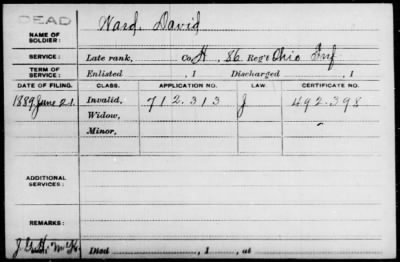 DEAD
NAME OF SOLDIER: Ward, David
SERVICE: Late rank, Co. H, 86 Reg't Ohio Inf
TERM OF SERVICE: Enlisted , 1 Discharged , 1
DATE OF FILING. CLASS. APPLICATION NO. LAW. CERTIFICATE NO.
1889 June 21. Invalid, 712.313 J 492.398
Widow,
Minor,
ADDITIONAL SERVICES:
REMARKS:
Died , 1 , at